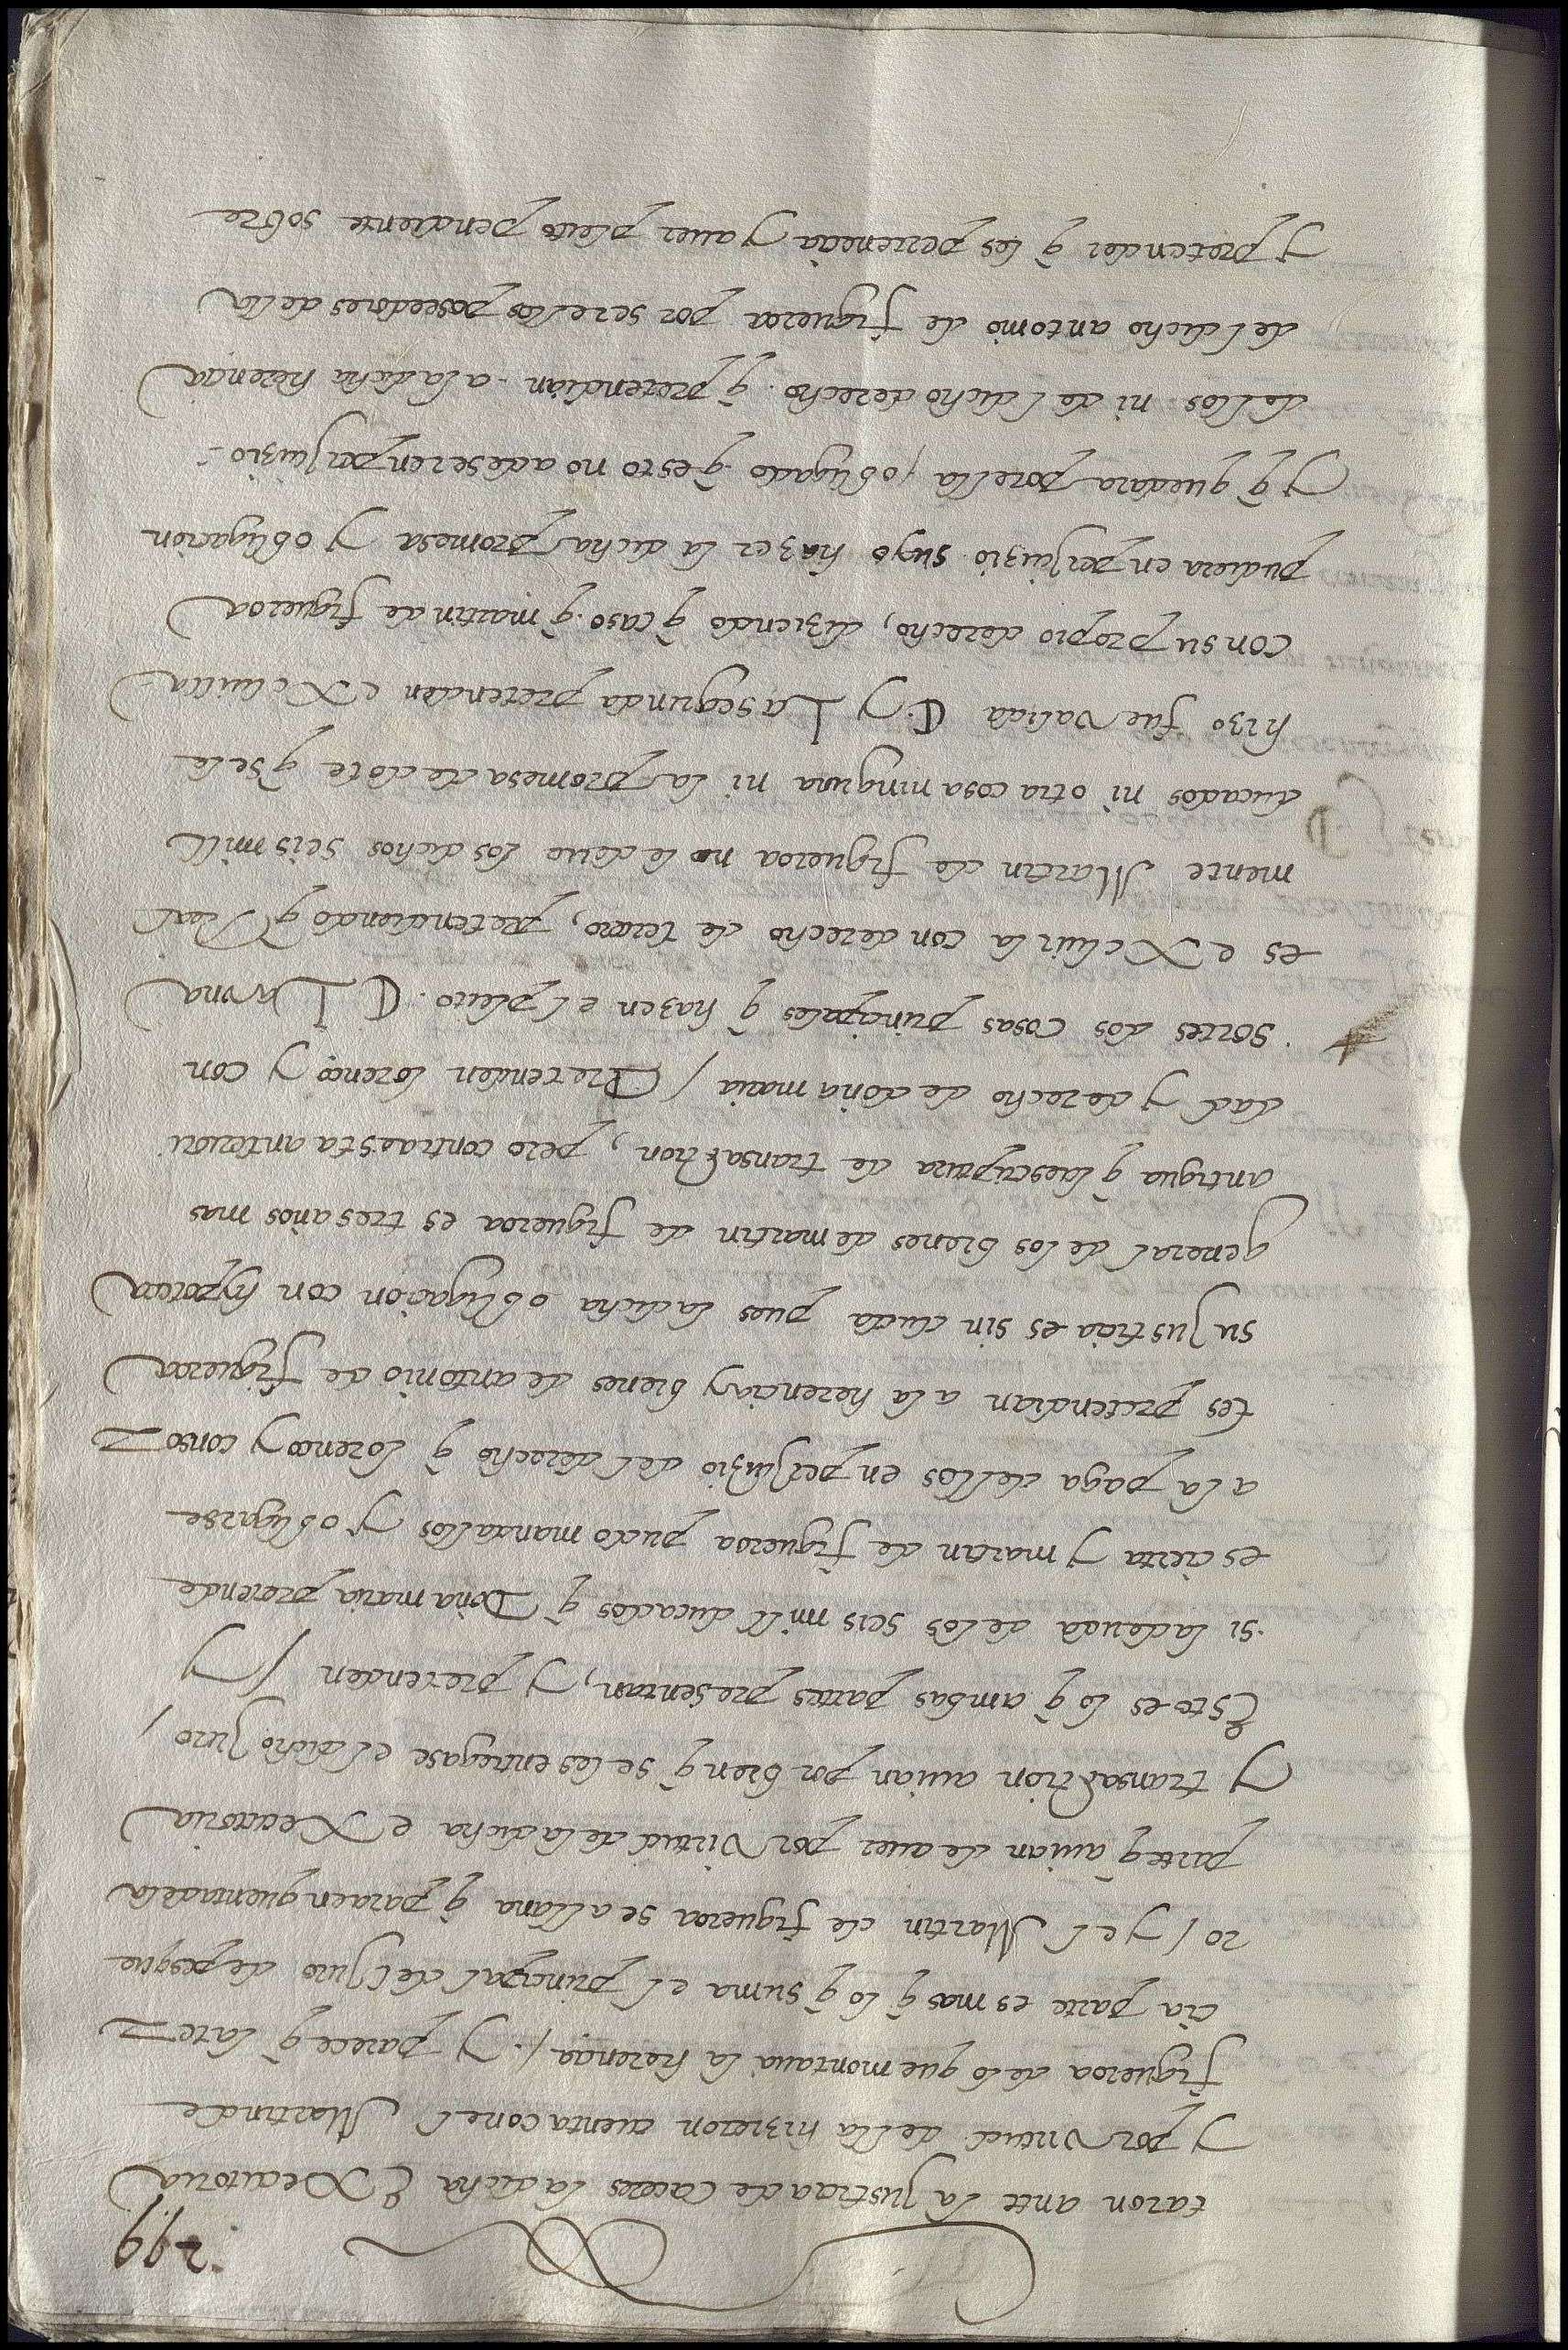 299
taron ante la Justicia de caceres la dicha eXecutoria
y por virtud della hizieron cuenta con el Martin de
figueroa de lo que montaua la herençia /. y parece q̃ la te-
cia parte es mas q̃ lo q̃ suma el principal del Juro de
ro / y el Martin de figueroa se allana q̃ para en quenta de la
parte q̃ auian de auer por Virtud de la dicha eXecutoria
y transaction auian por bien q̃ se les entregase el dicho Juro /
Esto es lo q̃ ambas partes presentan, y pretenden / y
si la deuda de los seis mill ducados q̃ Doña maria pretende
es cierta y martin de figueroa pudo mandallos y obligarse
a la paga dellos en perJuizio del derecho q̃ lorenço y conso-
tes pretendian a la herencia y bienes de antonio de figueroa
su Justicia es sin duda pues la dicha obligacion con hypoteca
general de los bienes de martin de figueroa es tres años mas
antigua q̃ la escriptura de transaction, pero contra esta anteriori
dad y derecho de doña maria / Pretenden lorenço y con
sortes dos cosas principales q̃ hazen el pleito. C La vna
es eXcluirla con derecho de tercero, pretendiendo q̃ Real
mente Martin de figueroa no le deuio los dichos seis mill
ducados ni otra cosa ninguna ni la promesa de dote q̃ se le
hizo fue valida C. y La segunda pretenden eXcluilla
con su propio derecho, diziendo q̃ caso q̃ martin de figueroa
pudiera en perJuizio suyo hazer la dicha promesa y obligacion
y q̃ quedara por ella obligado q̃ esto no a de ser en perJuizio
dellos ni del dicho derecho q̃ pretendian a la dicha herençia
del dicho antonio de figueroa por ser ellos poseedores della
y pretender q̃ les pertenecia y auer pleito pendiente sobre